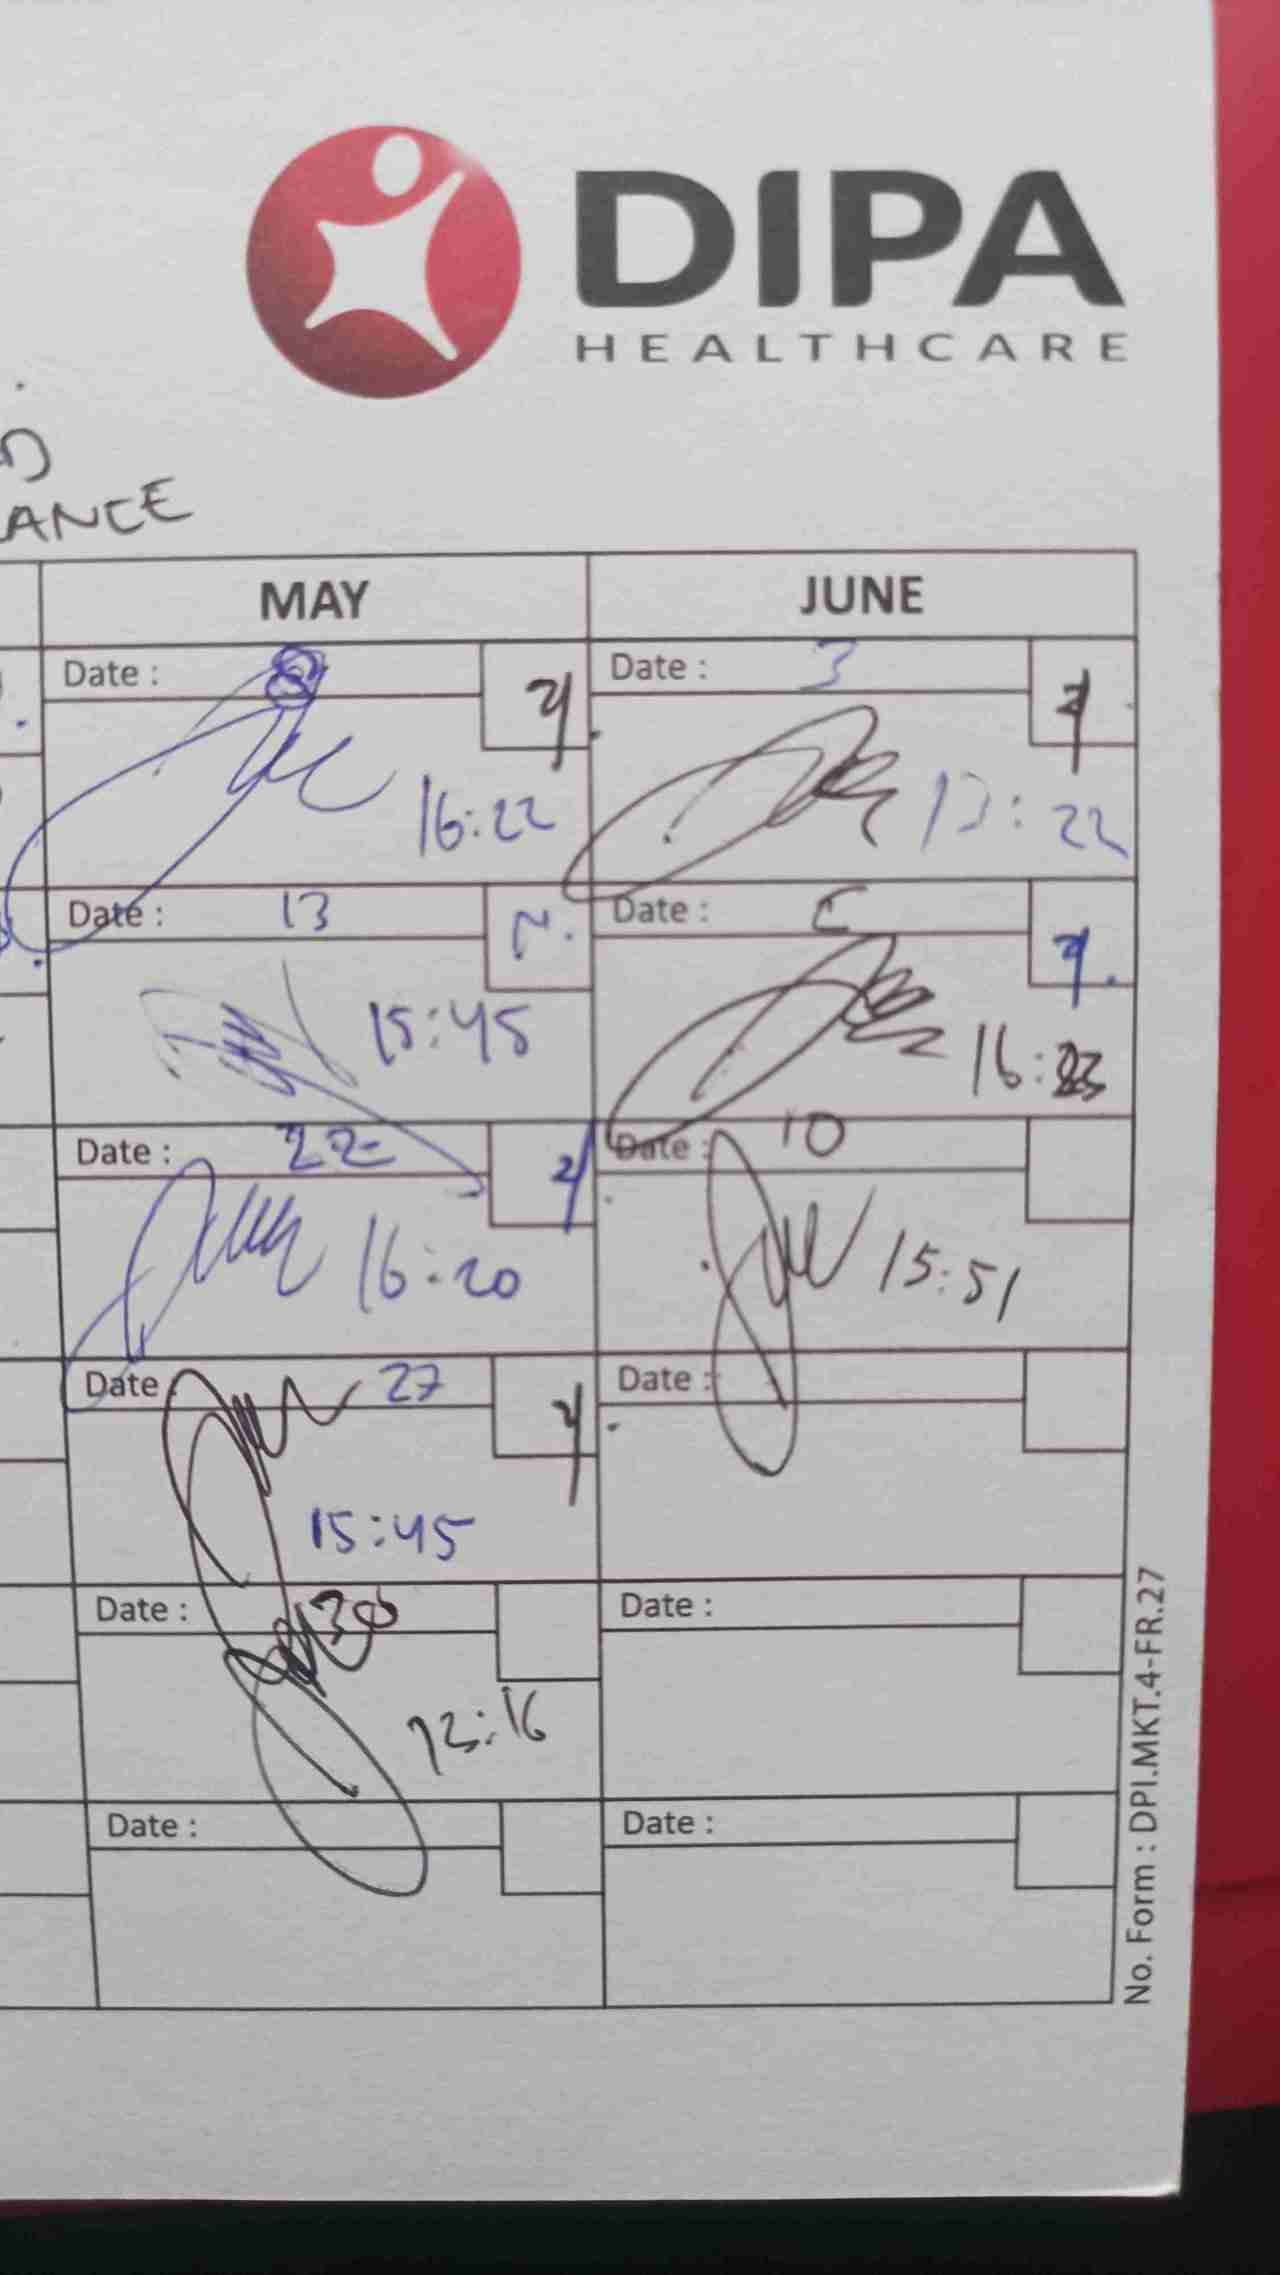 DIPA
HEALTHCARE
ANCE
MAY JUNE
Date : 8 Date : 3
16:22 13:22
Date : 13 Date :
15:45 16:23
Date : 22 Date : 10
16:20 15:51
Date : 27 Date :
15:45
Date : 30 Date :
13:16
Date : Date :
No. Form : DPI.MKT.4-FR.27